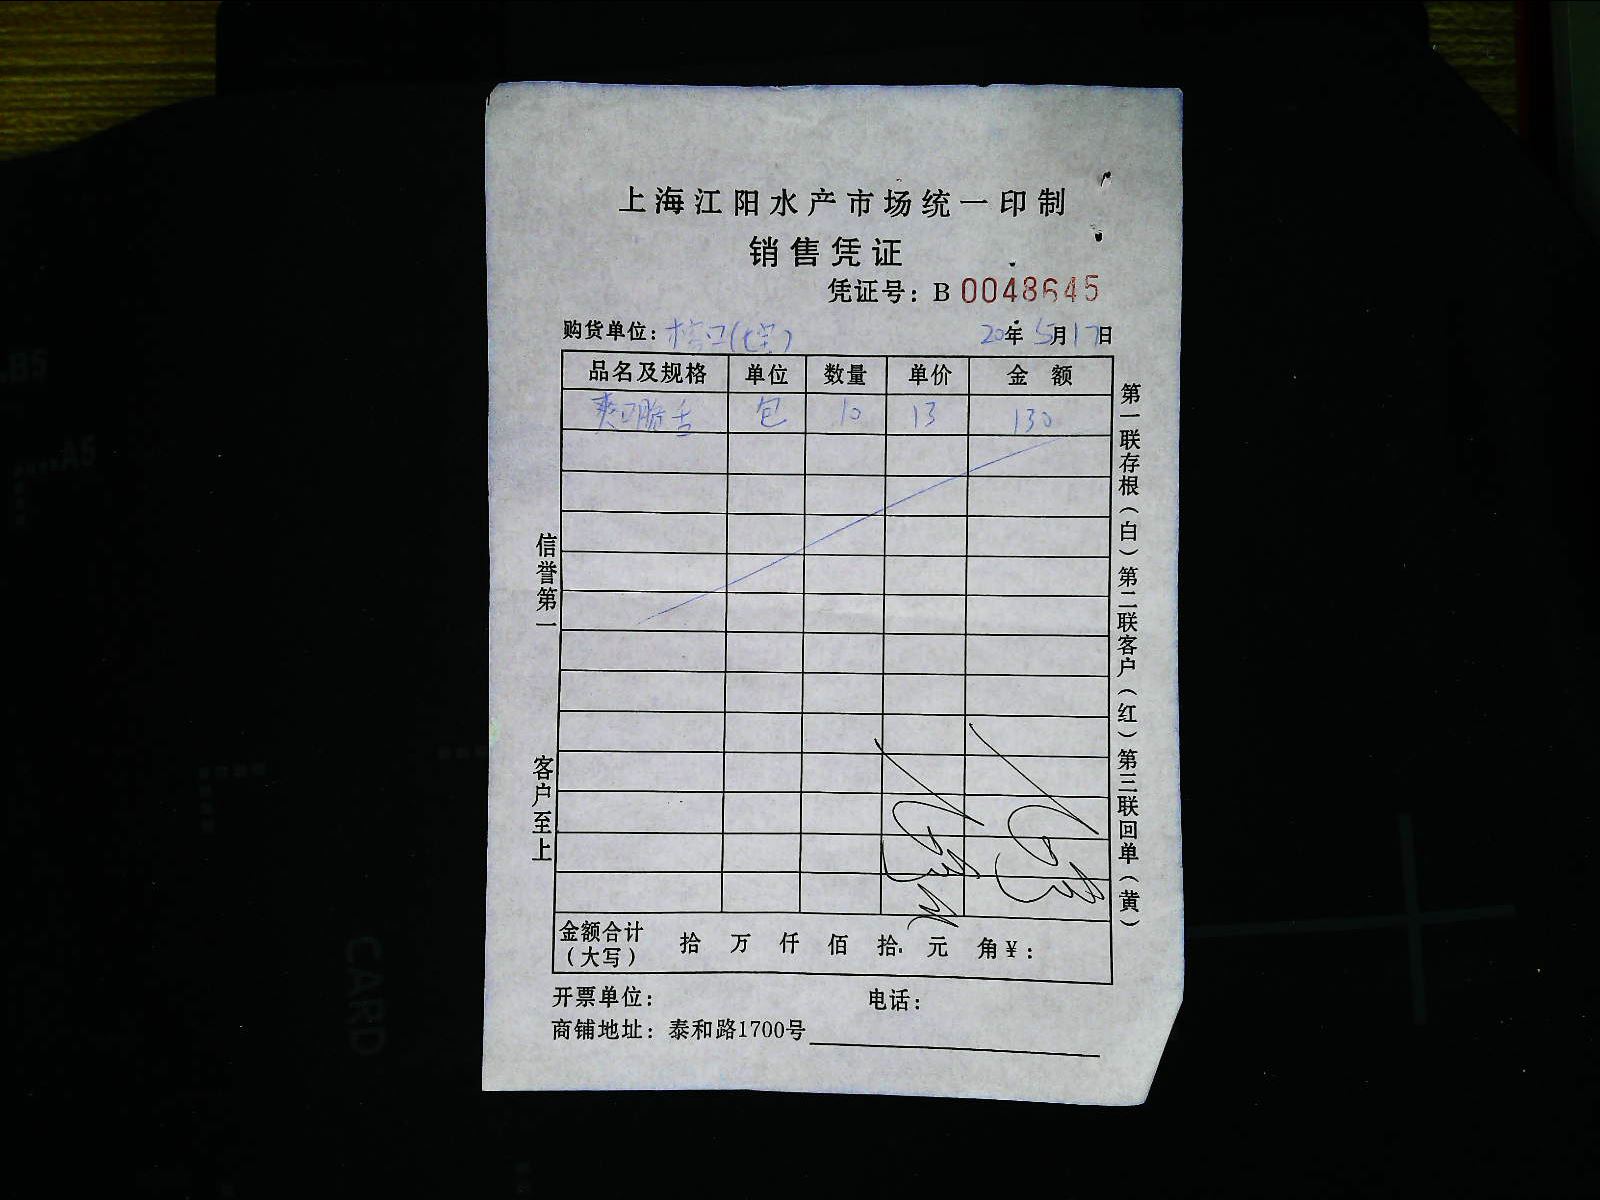 上海江阳水产市场统一印制
销售凭证
凭证号：B 0048645
购货单位： 20年5月17日
品名及规格 单位 数量 单价 金额
爽口 包 10 13 130
信誉第一
客户至上
第一联存根（白）第二联客户（红）第三联回单（黄）
金额合计（大写） 拾 万 仟 佰 拾 元 角 ¥：
开票单位： 电话：
商铺地址：泰和路1700号
CARD
B5
A5